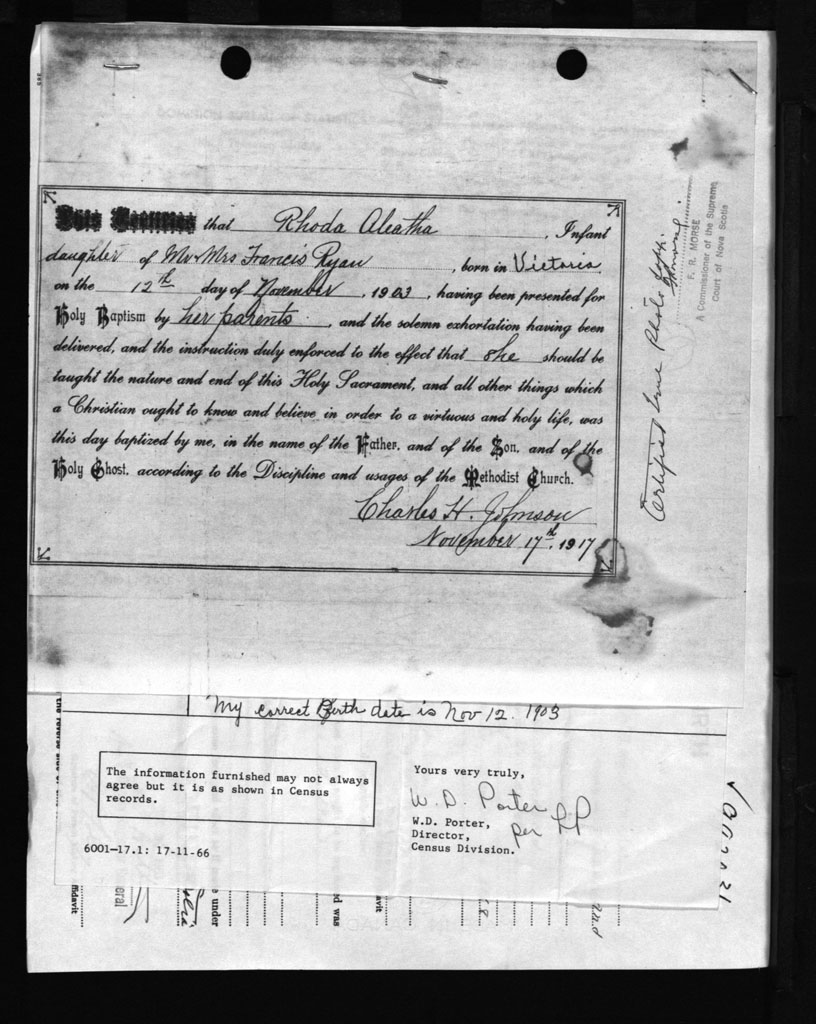 This Certifies that Rhoda Aleatha, Infant
daughter of Mr & Mrs Francis Ryan, born in Victoria,
on the 12th day of November, 1903, having been presented for
Holy Baptism by her parents, and the solemn exhortation having been
delivered, and the instruction duly enforced to the effect that she should be
taught the nature and end of this Holy Sacrament, and all other things which
a Christian ought to know and believe in order to a virtuous and holy life, was
this day baptized by me, in the name of the Father, and of the Son, and of the
Holy Ghost, according to the Discipline and usages of the Methodist Church.
Charles H. Johnson
November 17th, 1917
Certified true Photo
F. R. MORSE
A Commissioner of the Supreme
Court of Nova Scotia
My correct Birth date is Nov 12. 1903
The information furnished may not always
agree but it is as shown in Census
records.
6001-17.1: 17-11-66
Yours very truly,
W. D. Porter
per
W.D. Porter,
Director,
Census Division.
under